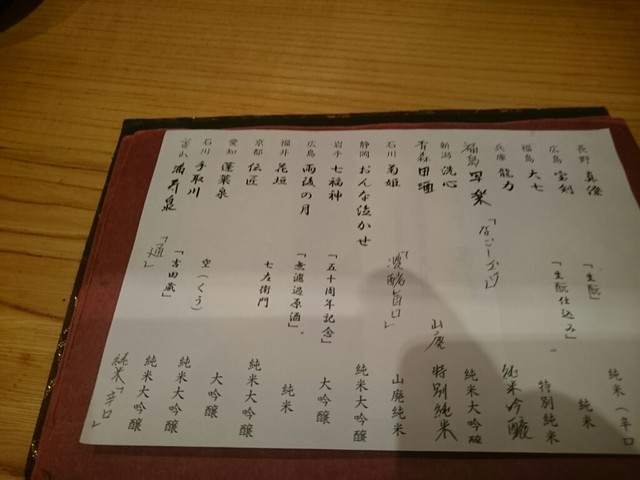 長野 真澄
広島 宝剣 純米(辛口
福島 大七 「生酛」 純米
兵庫 龍力 「生酛仕込み」 特別純米
福島 写楽 純米吟醸
新潟 洗心 純米大吟醸
青森 田酒 山廃 特別純米
石川 菊姫 「濃醇旨口」 山廃純米
静岡 おんな泣かせ 純米大吟醸
岩手 七福神 「五十周年記念」 大吟醸
広島 雨後の月 「無濾過原酒」。 純米
福井 花垣 七左衛門 純米大吟醸
京都 伝匠 大吟醸
愛知 蓬莱泉 空(くう) 純米大吟醸
石川 手取川 「吉田蔵」 純米大吟醸
富山 満寿泉 「通」 純米「辛口」